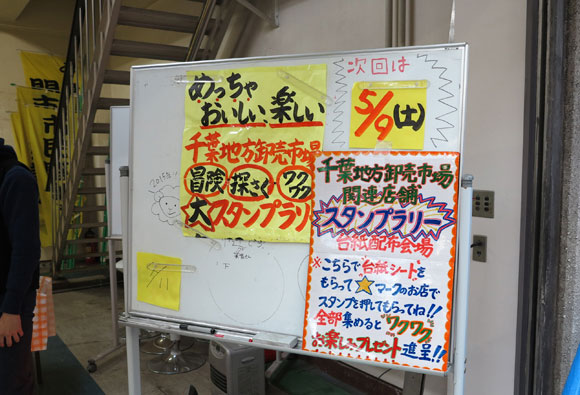 めっちゃ
おいしい、楽しい
千葉地方卸売市場
冒険・探さく・ワクワク
大スタンプラリー
次回は
5/9(土)
千葉地方卸売市場
関連店舗
スタンプラリー
台紙配布会場
※こちらで台紙シートを
もらって★マークのお店で
スタンプを押してもらってね!!
全部集めると"ワクワク"
お楽しみプレゼント進呈!!